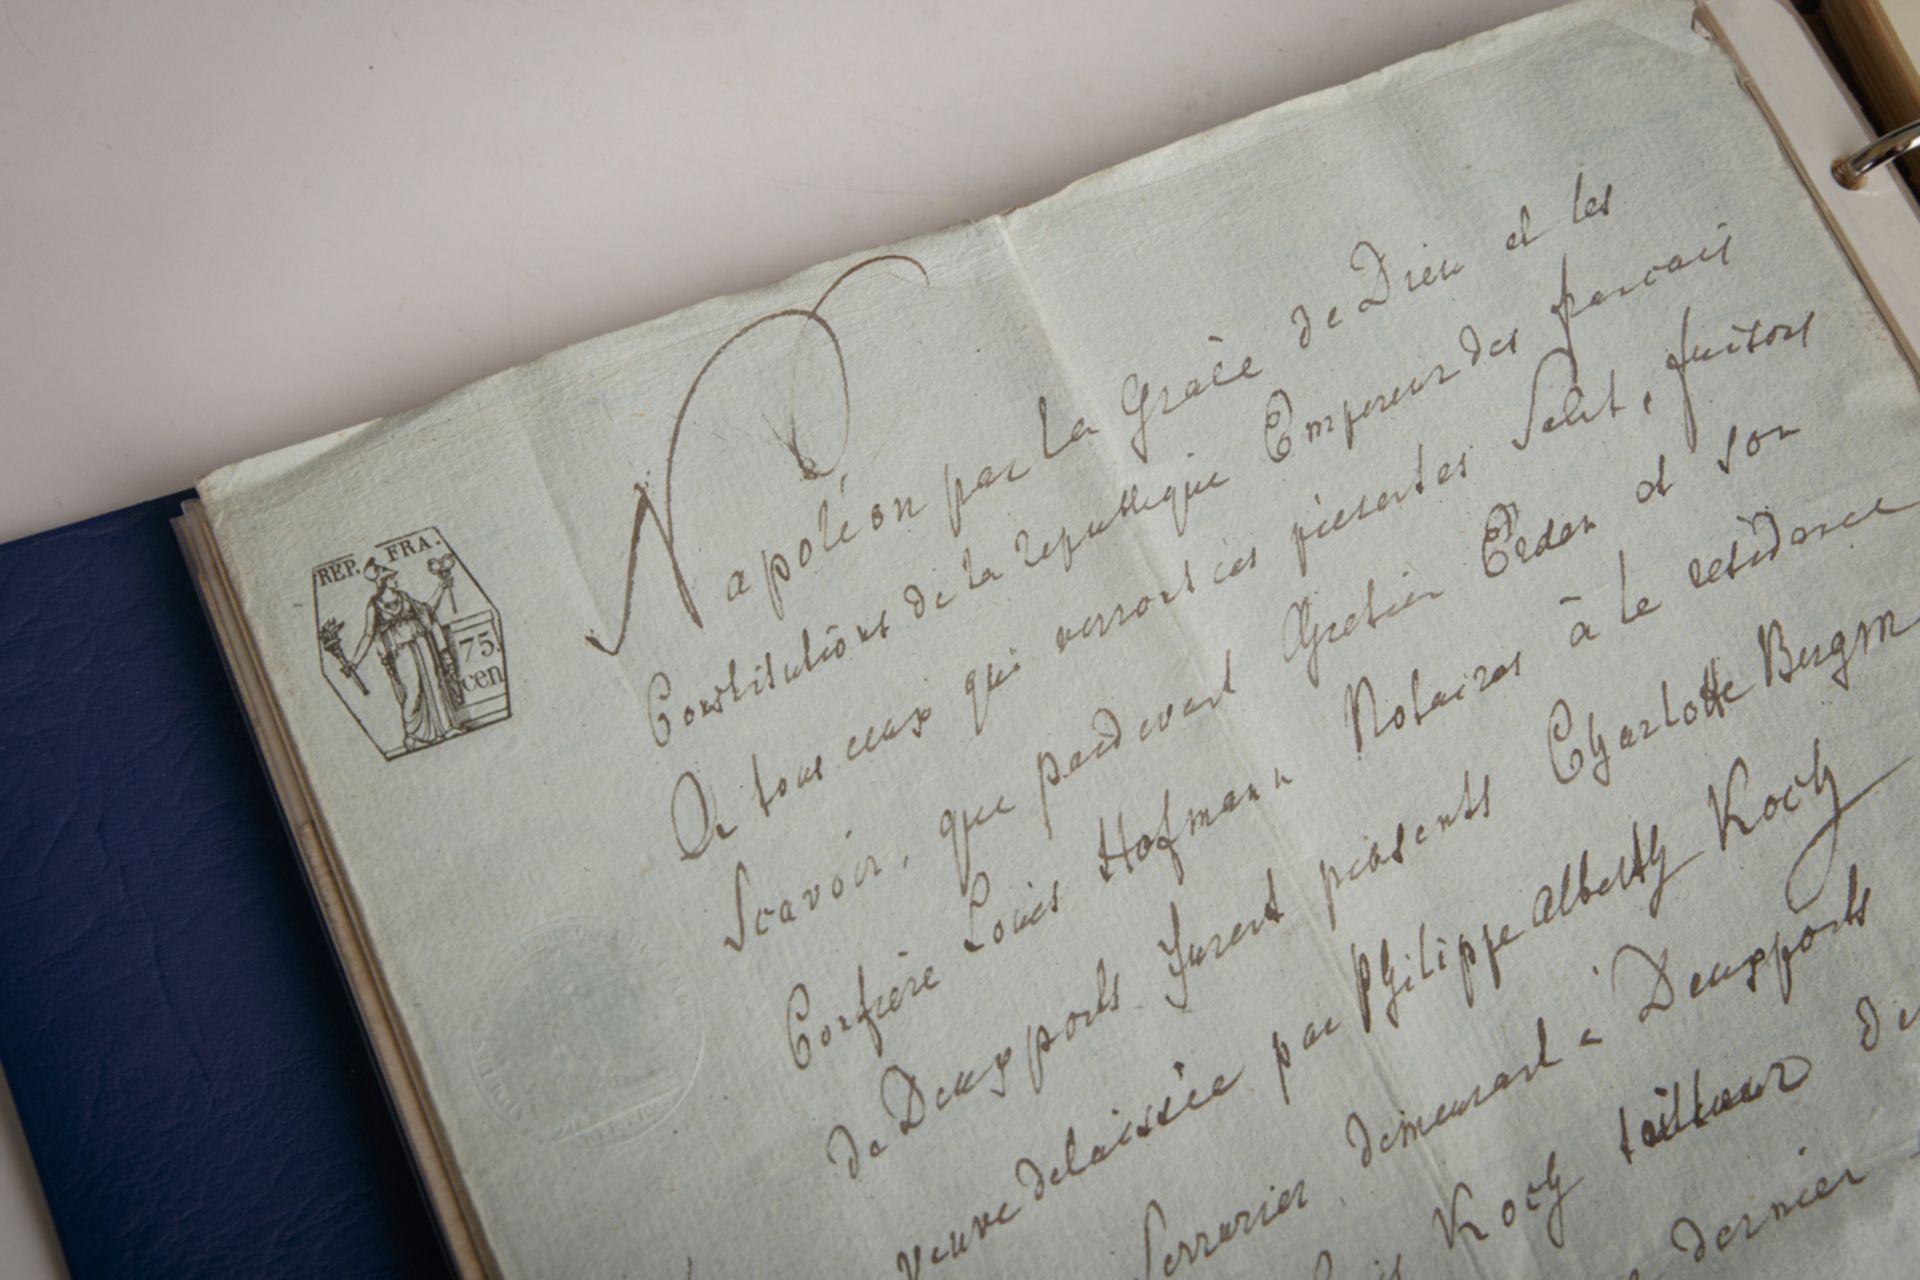 REP. FRA.
75.
cen
Napoléon par la Grace de Dieu et les
Constitutions de la republique Empereur des francais
A tous ceux qui verront ces presentes Salut, faisons
Scavoir, que pardevant Gretien Erden et son
Confrere Louis Hofmann Notaires à la residence
de Deuxponts furent présents Charlotte Bergm
veuve delaissée par Philippe Alberth Koch
Serrurier demeurant à Deuxponts
Koch tailleur de
dernier